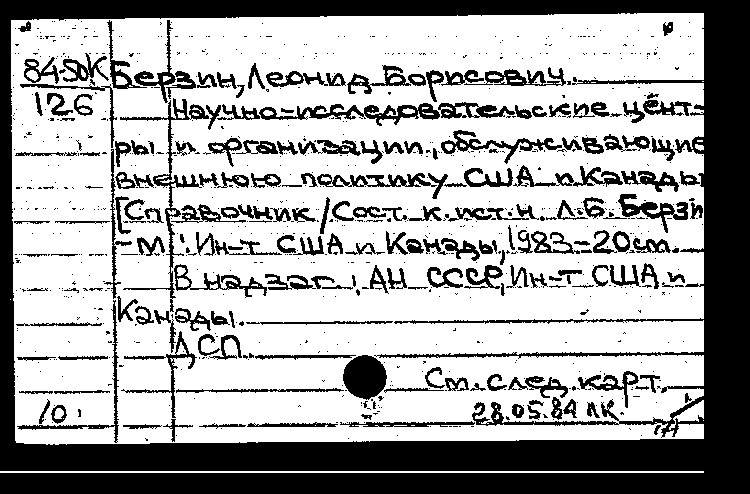 84-50К Берзин, Леонид Борисович.
126 Научно-исследовательские цент-
ры и организации, обслуживающие
внешнюю политику США и Канады
[Справочник / Сост. к.ист.н. Л.Б. Берзин
- М.: Ин-т США и Канады, 1983 - 20см.
В надзаг.: АН СССР, Ин-т США и
Канады.
ДСП
См. след. карт.
10 28.05.84 ЛК.